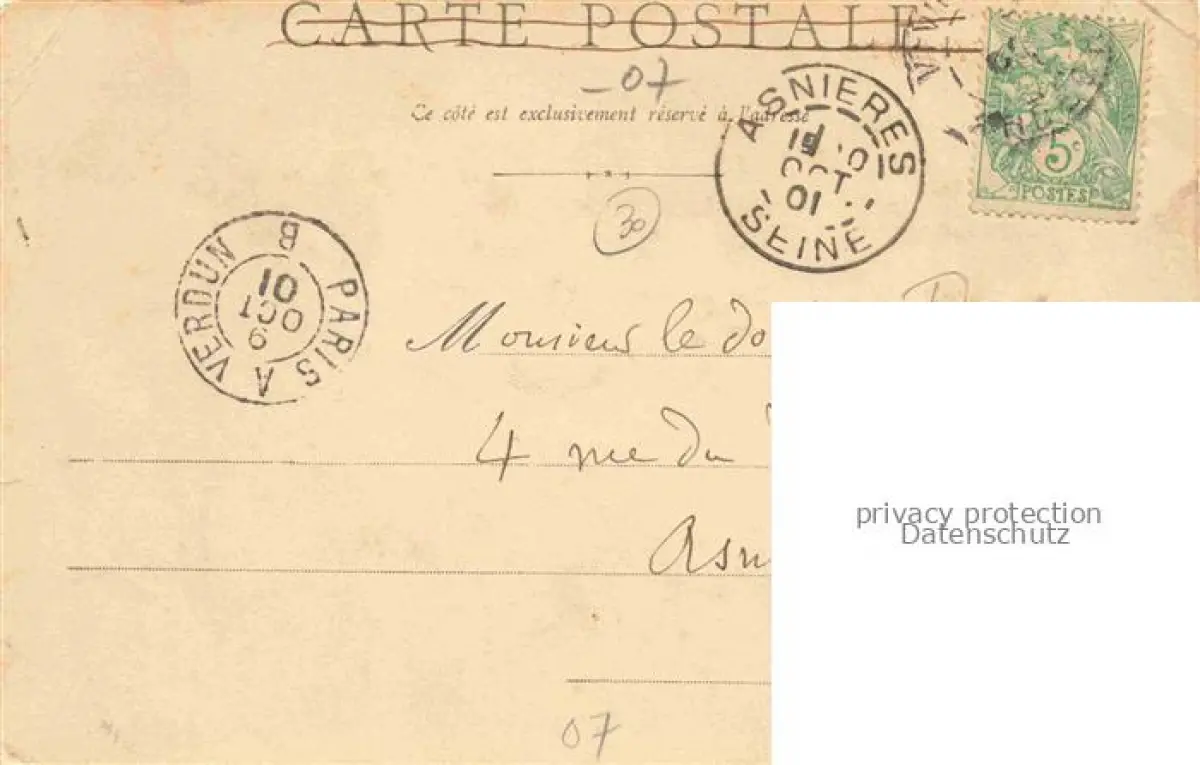 CARTE POSTALE
-07
Ce côté est exclusivement réservé à l'adresse
ASNIERES
OCT
01
SEINE
5c
POSTES
30
PARIS A VERDUN B
10
OCT
Monsieur le do
4 rue du
Asn
privacy protection
Datenschutz
07